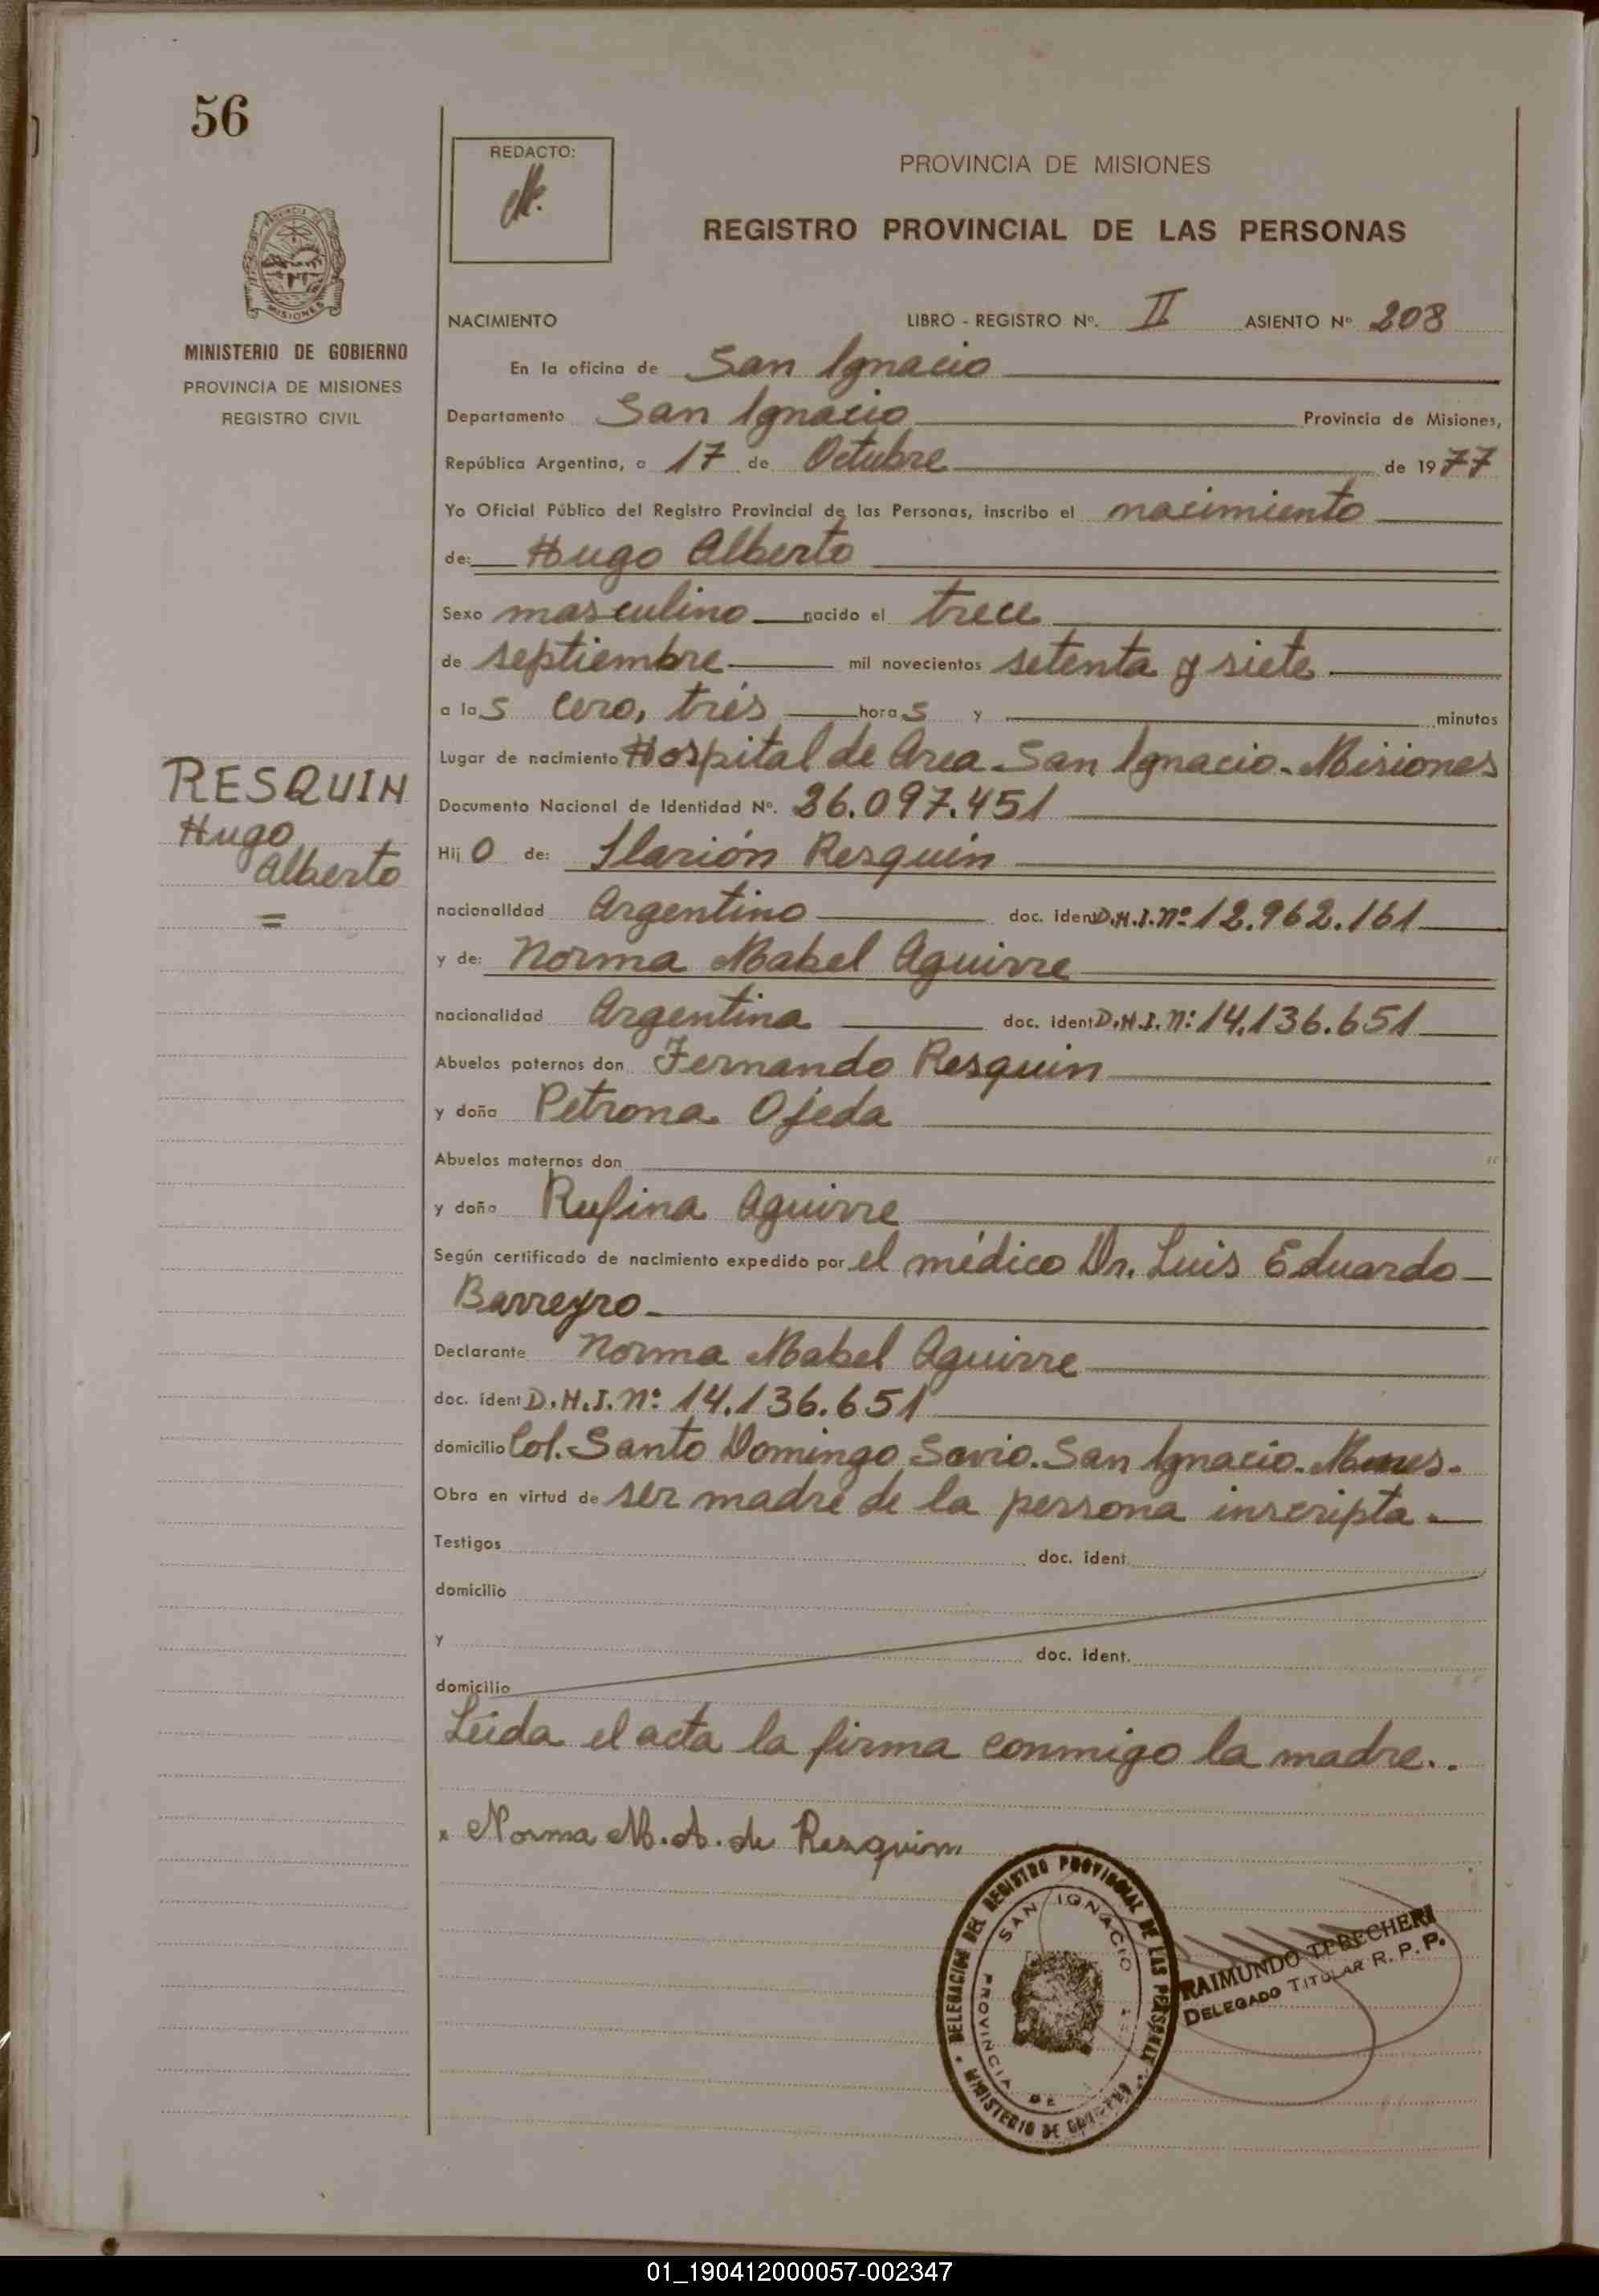 56
REDACTO:
PROVINCIA DE MISIONES
REGISTRO PROVINCIAL DE LAS PERSONAS
PROVINCIA DE
MISIONES
MINISTERIO DE GOBIERNO
PROVINCIA DE MISIONES
REGISTRO CIVIL
NACIMIENTO LIBRO - REGISTRO Nº. II ASIENTO Nº 208
En la oficina de San Ignacio
Departamento San Ignacio Provincia de Misiones,
República Argentina, a 17 de Octubre de 1977
Yo Oficial Público del Registro Provincial de las Personas, inscribo el nacimiento
de: Hugo Alberto
Sexo masculino nacido el trece
de septiembre mil novecientos setenta y siete
a las cero, tres horas y minutos
Lugar de nacimiento Hospital de Area San Ignacio - Misiones
Documento Nacional de Identidad Nº. 26.097.451
RESQUIN
Hugo
Alberto
=
Hijo de: Ilarión Resquin
nacionalidad Argentino doc. iden D.N.I. Nº 12.962.161
y de: Norma Mabel Aguirre
nacionalidad Argentina doc. ident D.N.I. Nº: 14.136.651
Abuelos paternos don Fernando Resquin
y doña Petrona Ojeda
Abuelos maternos don
y doña Rufina Aguirre
Según certificado de nacimiento expedido por el médico Dr. Luis Eduardo
Barreyro
Declarante Norma Mabel Aguirre
doc. ident D.N.I. Nº: 14.136.651
domicilio Col. Santo Domingo Savio. San Ignacio. Mnes.
Obra en virtud de ser madre de la persona inscripta.
Testigos doc. ident.
domicilio
y doc. ident.
domicilio
Leida el acta la firma conmigo la madre..
x Norma M. A. de Resquin
DELEGACION DEL REGISTRO PROVINCIAL DE LAS PERSONAS
SAN IGNACIO
PROVINCIA DE
MINISTERIO DE GOBIERNO
RAIMUNDO TERECHERI
DELEGADO TITULAR R. P. P.
01_190412000057-002347